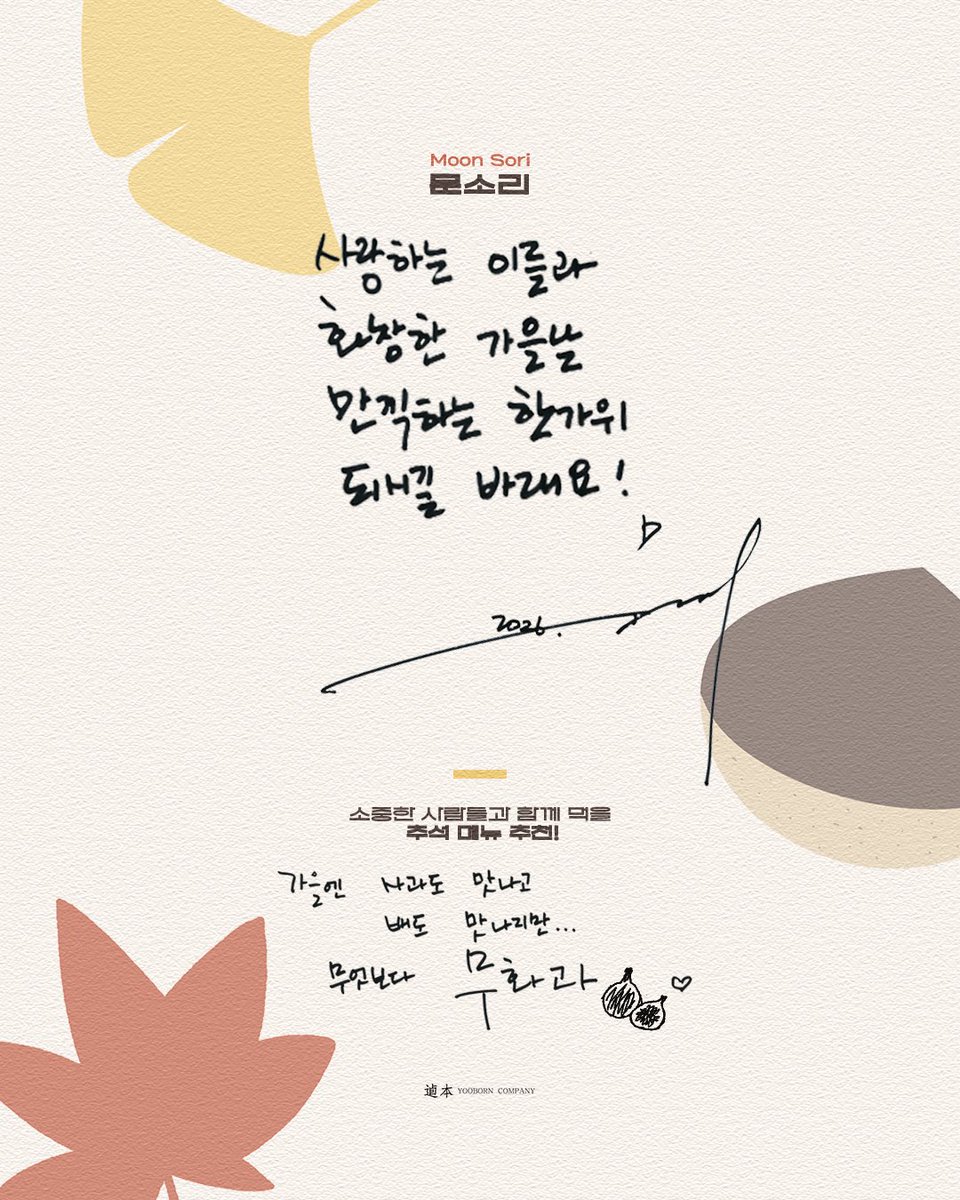 Moon Sori
문소리
사랑하는 이들과
화창한 가을날
만끽하는 한가위
되시길 바래요!
2026.
소중한 사람들과 함께 먹을
추석 메뉴 추천!
가을엔 사과도 맛나고
배도 맛나지만...
무엇보다 무화과
逌本 YOOBORN COMPANY